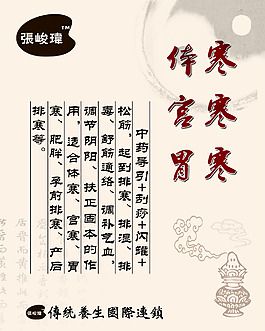 張峻瑋™
体寒
宫寒
胃寒
中药导引+刮痧+闪罐+
松筋，起到排寒、排湿、排
毒，舒筋通络、调补气血，
调节阴阳、扶正固本的作
用，适合体寒、宫寒、胃
寒、肥胖、孕前排寒、产后
排寒等。
張峻瑋 傳統養生國際連鎖